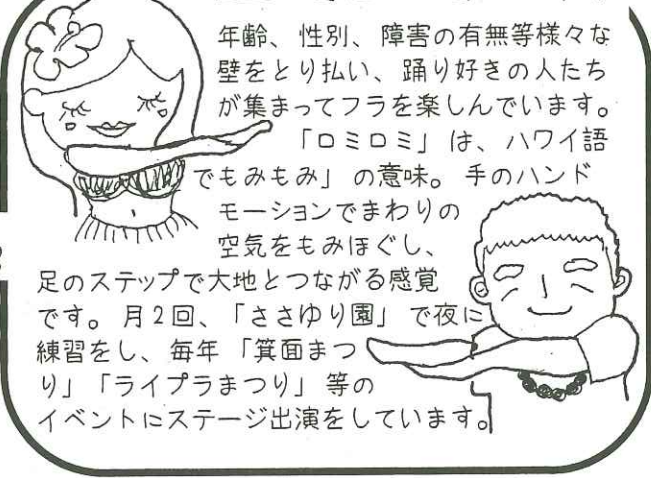 年齢、性別、障害の有無等様々な
壁をとり払い、踊り好きの人たち
が集まってフラを楽しんでいます。
「ロミロミ」は、ハワイ語
でもみもみ」の意味。手のハンド
モーションでまわりの
空気をもみほぐし、
足のステップで大地とつながる感覚
です。月2回、「ささゆり園」で夜に
練習をし、毎年「箕面まつ
り」「ライプラまつり」等の
イベントにステージ出演をしています。